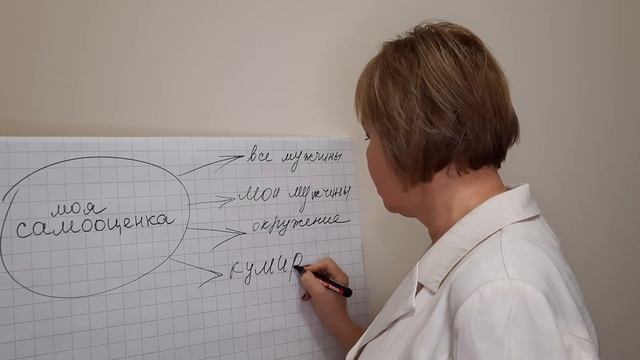 моя
самооценка
все мужчины
мои мужчины
окружение
кумир